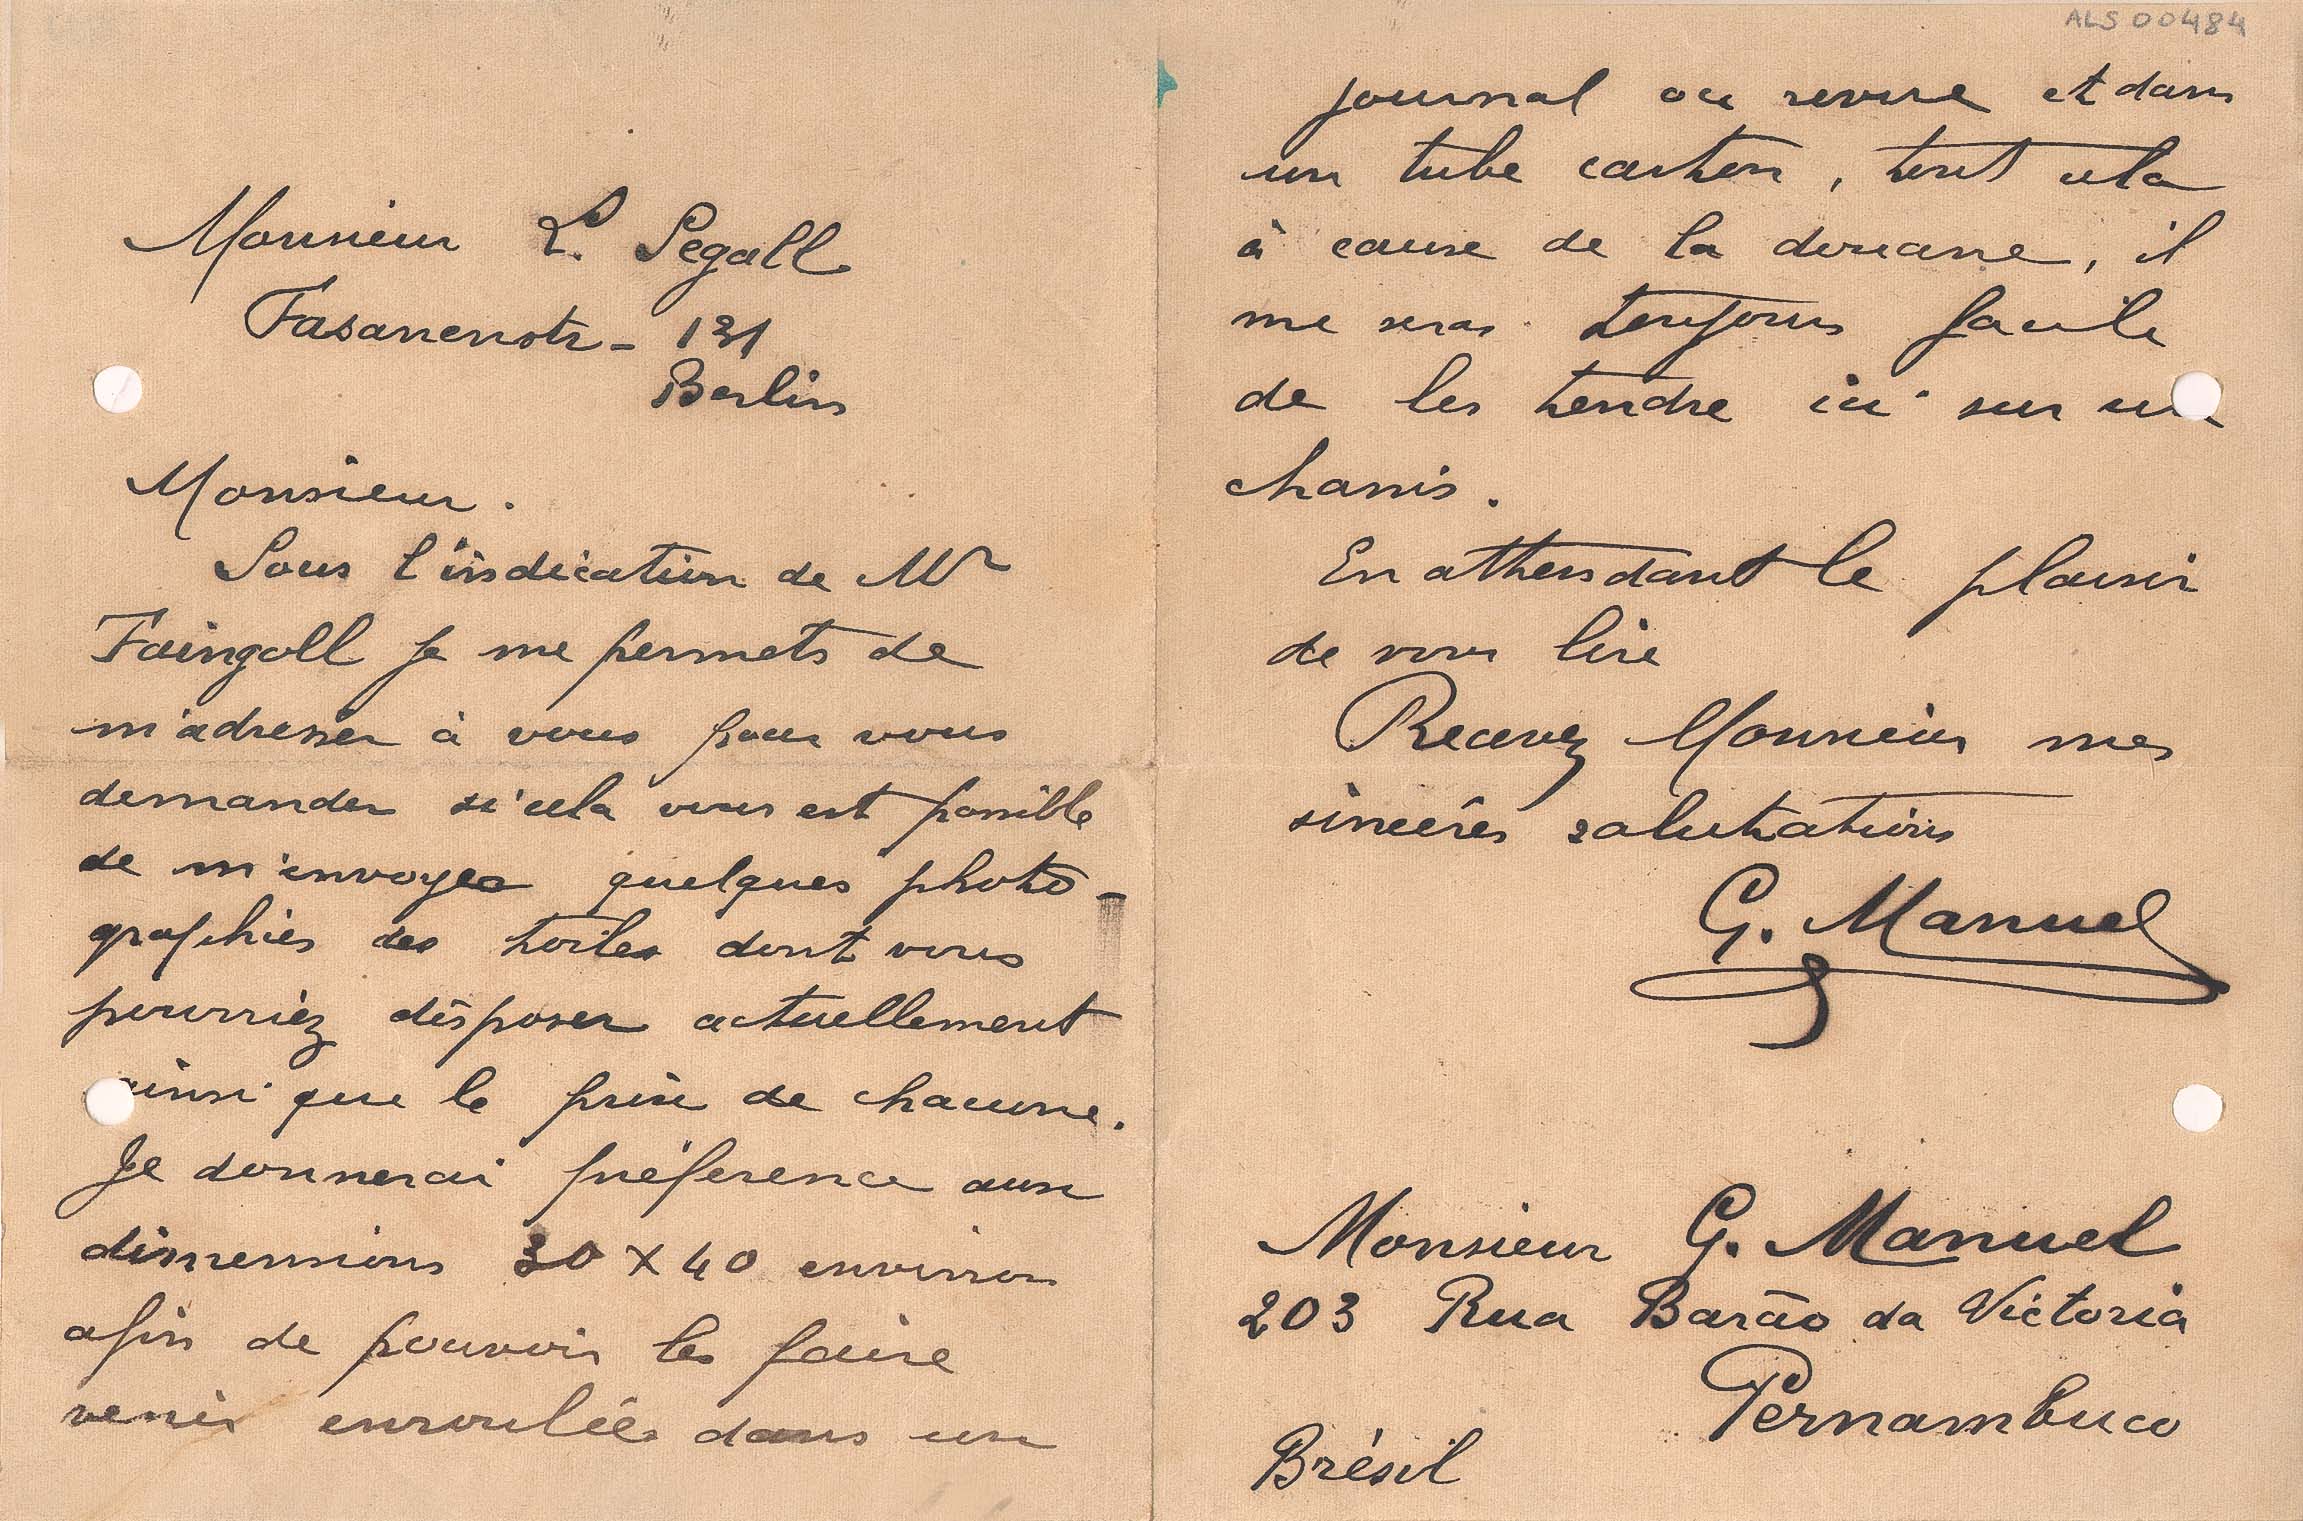 Monsieur L. Segall
Fasanenstr - 131
Berlin
Monsieur.
Sous l'indication de Mr
Faingoll je me permets de
m'adresser à vous pour vous
demander si cela vous est possible
de m'envoyer quelques photo-
graphies des toiles dont vous
pourriez disposer actuellement
ainsi que le prix de chacune.
Je donnerai préference aux
dimensions 30 x 40 environ
afin de pouvoir les faire
venir enroulées dans un
ALS 00484
journal ou revue et dans
un tube carton, tout cela
à cause de la douane, il
me seras toujours facile
de les tendre ici sur un
chassis.
En attendant le plaisir
de vous lire
Recevez Monsieur mes
sincères salutations
G. Manuel
Monsieur G. Manuel
203 Rua Barão da Victoria
Pernambuco
Brésil